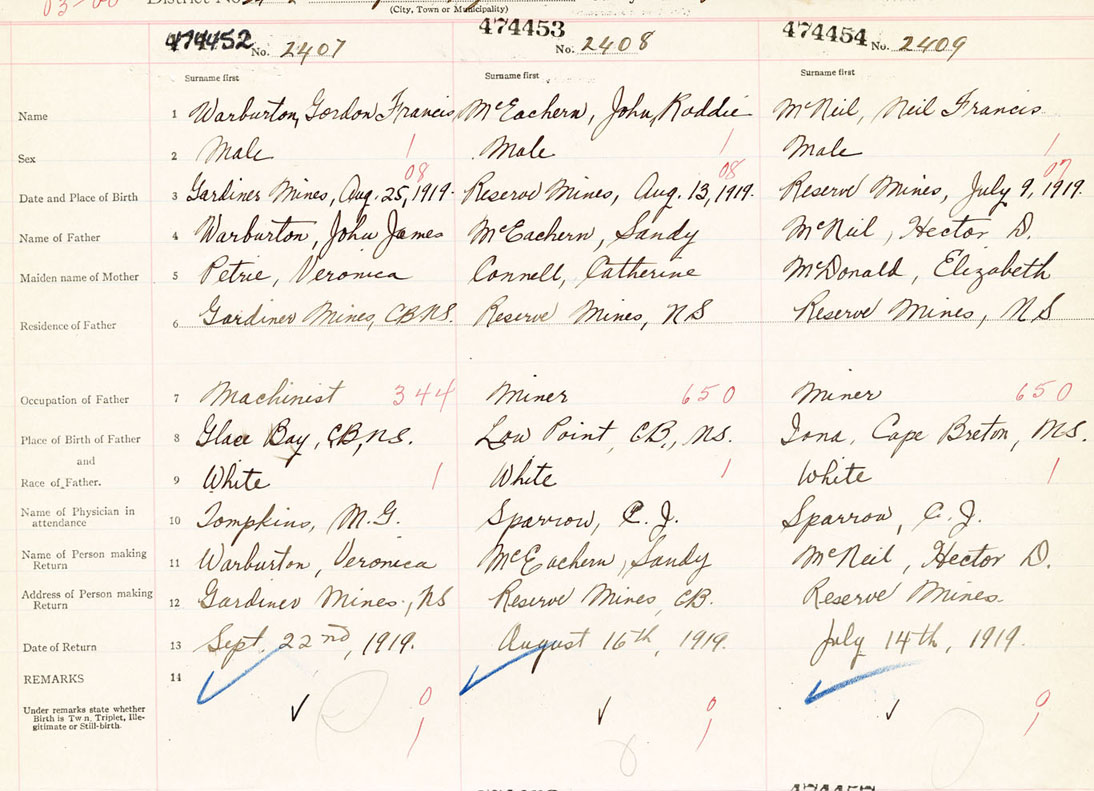 District No.
(City, Town or Municipality)
474452 No. 2407 474453 No. 2408 474454 No. 2409
Surname first Surname first Surname first
Name 1 Warburton, Gordon Francis McEachern, John Roddie McNeil, Neil Francis
Sex 2 Male 1 Male 1 Male 1
08 08 07
Date and Place of Birth 3 Gardiner Mines, Aug. 25, 1919. Reserve Mines, Aug. 13, 1919. Reserve Mines, July 9, 1919.
Name of Father 4 Warburton, John James McEachern, Sandy McNeil, Hector D.
Maiden name of Mother 5 Petrie, Veronica Connell, Catherine McDonald, Elizabeth
Residence of Father 6 Gardiner Mines, CB NS. Reserve Mines, NS Reserve Mines, NS
Occupation of Father 7 Machinist 344 Miner 650 Miner 650
Place of Birth of Father 8 Glace Bay, CB, NS. Low Point, CB., NS. Iona, Cape Breton, NS.
and
Race of Father. 9 White 1 White 1 White 1
Name of Physician in
attendance 10 Tompkins, M.G. Sparrow, C. J. Sparrow, C. J.
Name of Person making
Return 11 Warburton, Veronica McEachern, Sandy McNeil, Hector D.
Address of Person making
Return 12 Gardiner Mines, NS Reserve Mines, CB. Reserve Mines.
Date of Return 13 Sept. 22nd, 1919. August 16th, 1919. July 14th, 1919.
REMARKS 14
0 0 0
Under remarks state whether
Birth is Twin, Triplet, Ille-
gitimate or Still-birth.
1 1 1